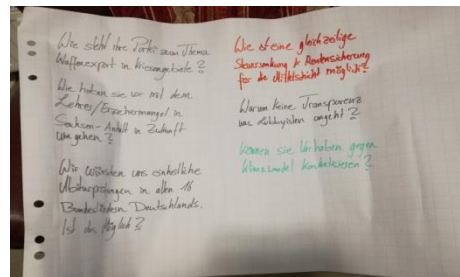 Wie steht ihre Partei zum Thema
Waffenexport in Kriesengebiete?
Wie haben sie vor mit dem
Lehrer/Erziehermangel in
Sachsen-Anhalt in Zukunft
um gehen?
Wir wünschen uns einheitliche
Abiturprüfungen in allen 16
Bundesländern Deutschlands.
Ist das Möglich?
Wie ist eine gleichzeitige
Steuersenkung & Rentensicherung
für die Mittelschicht möglich?
Warum keine Transparenz
was Lobbyisten angeht?
Können sie Vorhaben gegen
Klimawandel konkretisieren?